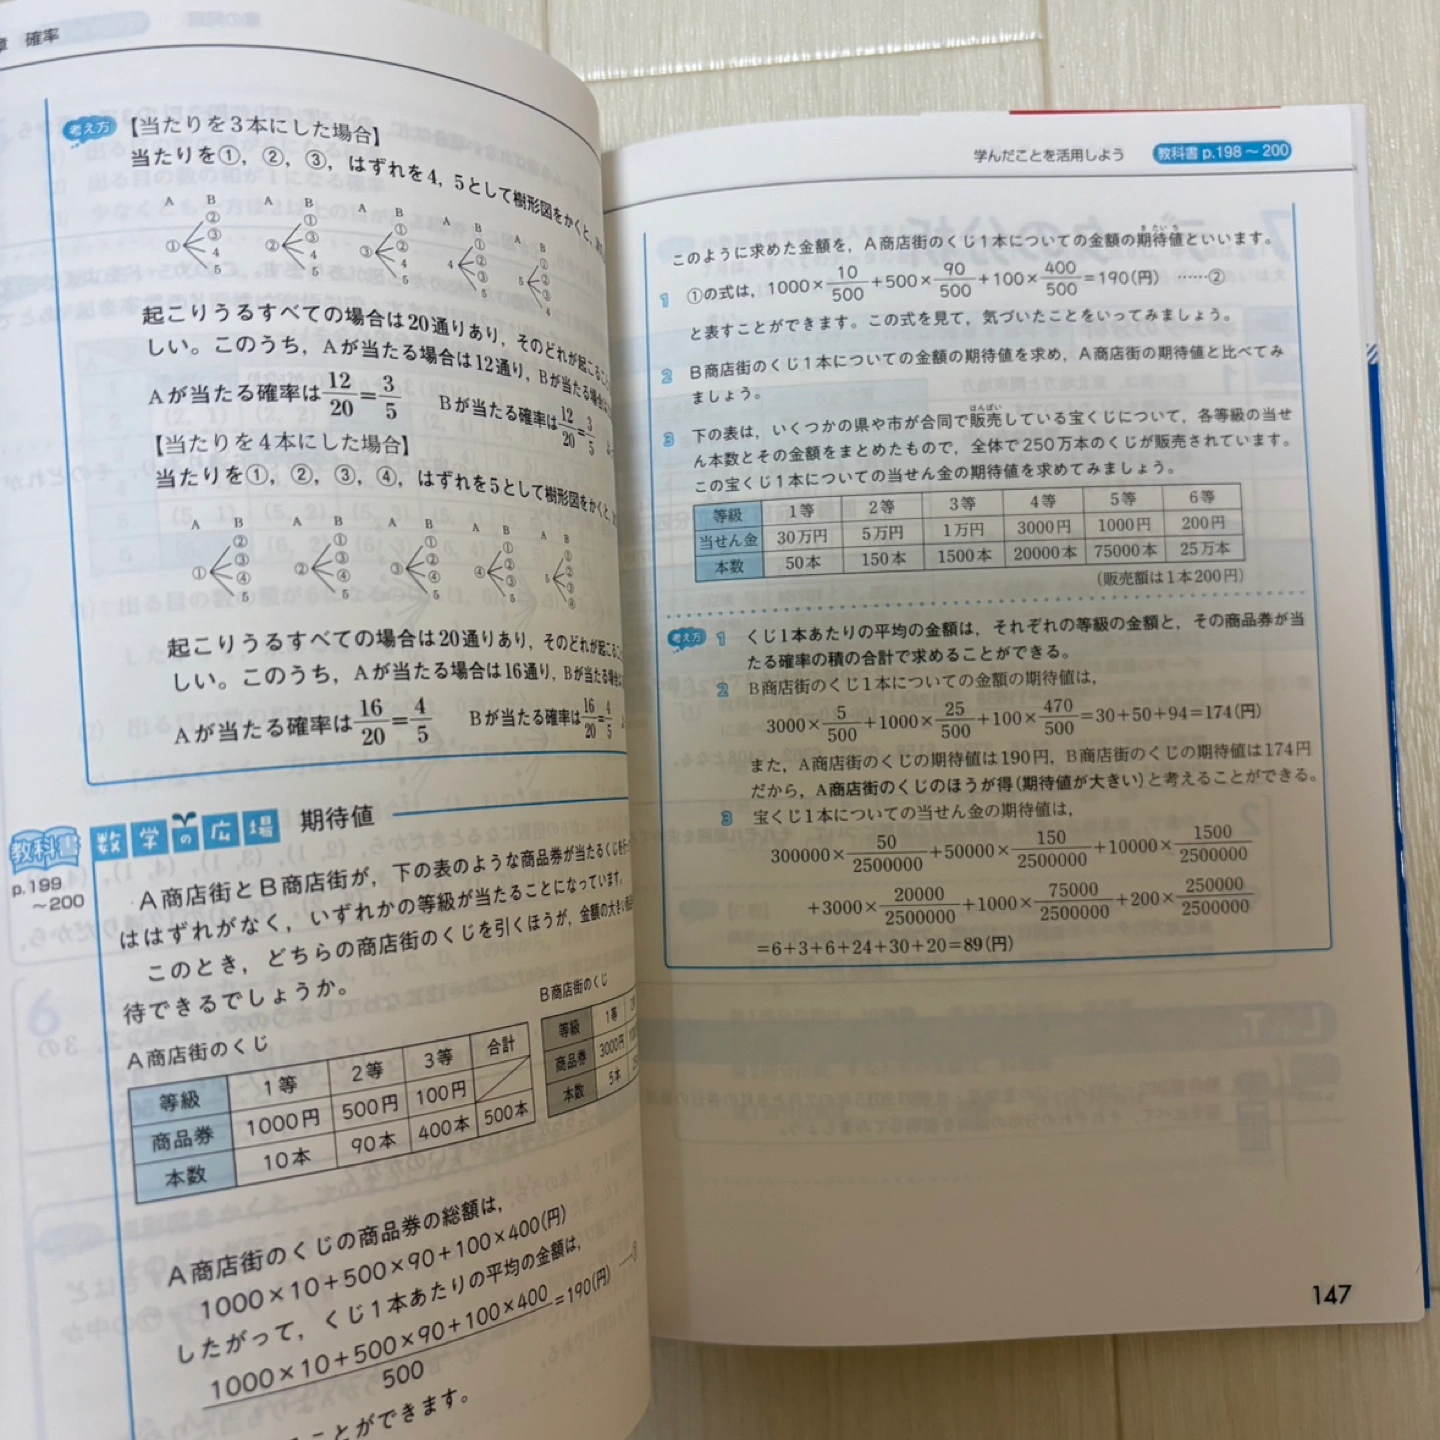 章 確率
考え方
【当たりを3本にした場合】
当たりを①，②，③，はずれを4，5として樹形図をかくと，
A B A B A B A B A B
① ② ③ 4 5
② ① ③ 4 5
③ ① ② 4 5
4 ① ② ③ 5
5 ① ② ③ 4
起こりうるすべての場合は20通りあり，そのどれが起こること
しい。このうち，Aが当たる場合は12通り，Bが当たる場合
Aが当たる確率は12/20=3/5 Bが当たる確率は12/20=3/5
【当たりを4本にした場合】
当たりを①，②，③，④，はずれを5として樹形図をかくと，
A B A B A B A B A B
① ② ③ ④ 5
② ① ③ ④ 5
③ ① ② ④ 5
④ ① ② ③ 5
5 ① ② ③ ④
起こりうるすべての場合は20通りあり，そのどれが起こる
しい。このうち，Aが当たる場合は16通り，Bが当たる場合
Aが当たる確率は16/20=4/5 Bが当たる確率は16/20=4/5
教科書
p.199
～200
数学の広場 期待値
A商店街とB商店街が，下の表のような商品券が当たるくじを
ははずれがなく，いずれかの等級が当たることになっています。
このとき，どちらの商店街のくじを引くほうが，金額の大きい
待できるでしょうか。
A商店街のくじ
等級 1等 2等 3等 合計
商品券 1000円 500円 100円
本数 10本 90本 400本 500本
B商店街のくじ
等級 1等
商品券 3000円
本数 5本
A商店街のくじの商品券の総額は，
1000×10+500×90+100×400(円)
したがって，くじ1本あたりの平均の金額は，
(1000×10+500×90+100×400)/500=190(円)
ことができます。
学んだことを活用しよう 教科書 p.198～200
このように求めた金額を，A商店街のくじ1本についての金額の期待値といいます。
きたいち
1 ①の式は，1000×10/500+500×90/500+100×400/500=190(円) ……②
と表すことができます。この式を見て，気づいたことをいってみましょう。
2 B商店街のくじ1本についての金額の期待値を求め，A商店街の期待値と比べてみ
ましょう。
はんばい
3 下の表は，いくつかの県や市が合同で販売している宝くじについて，各等級の当せ
ん本数とその金額をまとめたもので，全体で250万本のくじが販売されています。
この宝くじ1本についての当せん金の期待値を求めてみましょう。
等級 1等 2等 3等 4等 5等 6等
当せん金 30万円 5万円 1万円 3000円 1000円 200円
本数 50本 150本 1500本 20000本 75000本 25万本
(販売額は1本200円)
考え方 1 くじ1本あたりの平均の金額は，それぞれの等級の金額と，その商品券が当
たる確率の積の合計で求めることができる。
2 B商店街のくじ1本についての金額の期待値は，
3000×5/500+1000×25/500+100×470/500=30+50+94=174(円)
また，A商店街のくじの期待値は190円，B商店街のくじの期待値は174円
だから，A商店街のくじのほうが得(期待値が大きい)と考えることができる。
3 宝くじ1本についての当せん金の期待値は，
300000×50/2500000+50000×150/2500000+10000×1500/2500000
+3000×20000/2500000+1000×75000/2500000+200×250000/2500000
=6+3+6+24+30+20=89(円)
147